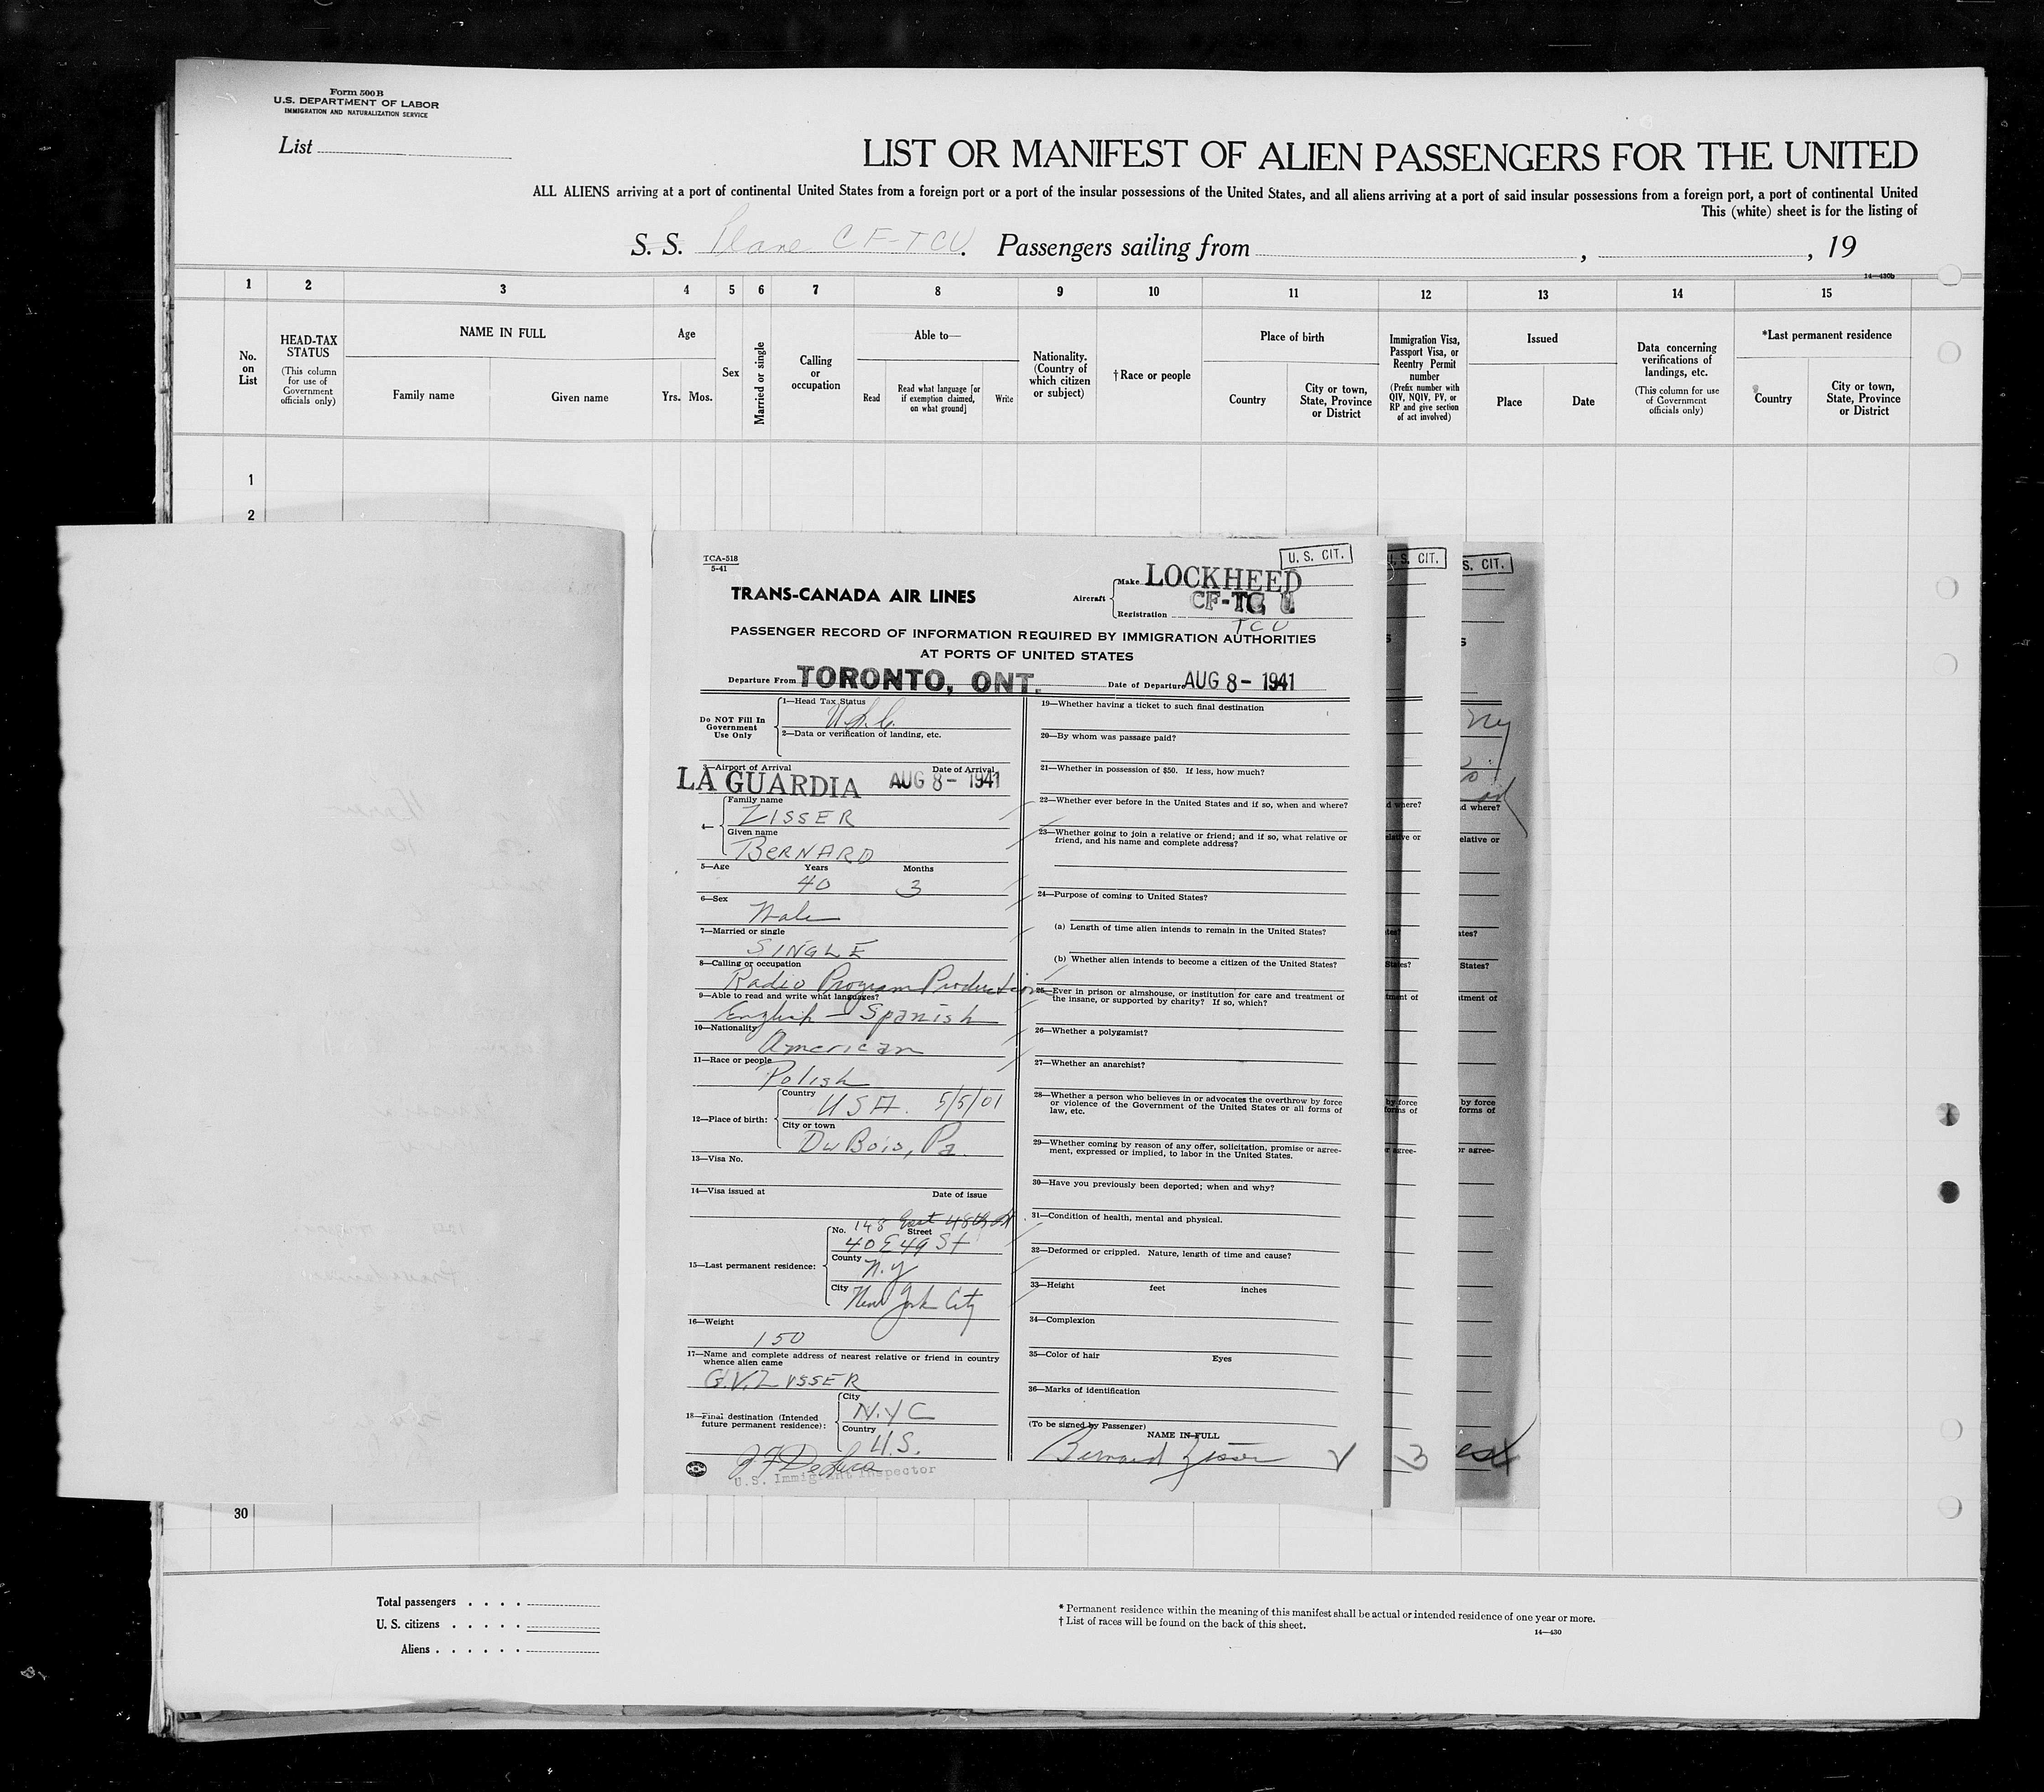 Form 500 B
U.S. DEPARTMENT OF LABOR
IMMIGRATION AND NATURALIZATION SERVICE
List
LIST OR MANIFEST OF ALIEN PASSENGERS FOR THE UNITED
ALL ALIENS arriving at a port of continental United States from a foreign port or a port of the insular possessions of the United States, and all aliens arriving at a port of said insular possessions from a foreign port, a port of continental United
This (white) sheet is for the listing of
S. S. Plane CF-TCU. Passengers sailing from , , 19
14—430b
1 2 3 4 5 6 7 8 9 10 11 12 13 14 15
No. on List
HEAD-TAX STATUS
(This column for use of Government officials only)
NAME IN FULL
Family name Given name
Age
Yrs. Mos.
Sex
Married or single
Calling or occupation
Able to—
Read
Read what language [or if exemption claimed, on what ground]
Write
Nationality. (Country of which citizen or subject)
†Race or people
Place of birth
Country
City or town, State, Province or District
Immigration Visa, Passport Visa, or Reentry Permit number
(Prefix number with QIV, NQIV, PV, or RP and give section of act involved)
Issued
Place Date
Data concerning verifications of landings, etc.
(This column for use of Government officials only)
*Last permanent residence
Country
City or town, State, Province or District
1
2
TCA-518
5-41
U. S. CIT.
S. CIT.
S. CIT.
TRANS-CANADA AIR LINES
Aircraft
Make LOCKHEED
Registration CF-TC
TCU
PASSENGER RECORD OF INFORMATION REQUIRED BY IMMIGRATION AUTHORITIES
AT PORTS OF UNITED STATES
Departure From TORONTO, ONT. Date of Departure AUG 8- 1941
Do NOT Fill In Government Use Only
1—Head Tax Status
U.S.C.
2—Data or verification of landing, etc.
3—Airport of Arrival Date of Arrival
LA GUARDIA AUG 8- 1941
4—
Family name
ZISSER
Given name
BERNARD
5—Age Years Months
40 3
6—Sex
Male
7—Married or single
SINGLE
8—Calling or occupation
Radio Program Production
9—Able to read and write what languages?
English — Spanish
10—Nationality
American
11—Race or people
Polish
12—Place of birth:
Country
USA. 5/5/01
City or town
DuBois, Pa.
13—Visa No.
14—Visa issued at Date of issue
15—Last permanent residence:
148 East 48th St
No. Street
40 E 49 St
County
N.Y
City
New York City
16—Weight
150
17—Name and complete address of nearest relative or friend in country
whence alien came
G.V. ZYSSER
18—Final destination (Intended
future permanent residence):
City
N.Y C
Country
U.S.
U.S. Immigrant Inspector
19—Whether having a ticket to such final destination
20—By whom was passage paid?
21—Whether in possession of $50. If less, how much?
22—Whether ever before in the United States and if so, when and where?
23—Whether going to join a relative or friend; and if so, what relative or
friend, and his name and complete address?
24—Purpose of coming to United States?
(a) Length of time alien intends to remain in the United States?
(b) Whether alien intends to become a citizen of the United States?
25—Ever in prison or almshouse, or institution for care and treatment of
the insane, or supported by charity? If so, which?
26—Whether a polygamist?
27—Whether an anarchist?
28—Whether a person who believes in or advocates the overthrow by force
or violence of the Government of the United States or all forms of
law, etc.
29—Whether coming by reason of any offer, solicitation, promise or agree-
ment, expressed or implied, to labor in the United States.
30—Have you previously been deported; when and why?
31—Condition of health, mental and physical.
32—Deformed or crippled. Nature, length of time and cause?
33—Height feet inches
34—Complexion
35—Color of hair Eyes
36—Marks of identification
(To be signed by Passenger)
NAME IN FULL
Bernard Zisser
3
30
Total passengers
U. S. citizens
Aliens
* Permanent residence within the meaning of this manifest shall be actual or intended residence of one year or more.
† List of races will be found on the back of this sheet.
14—430